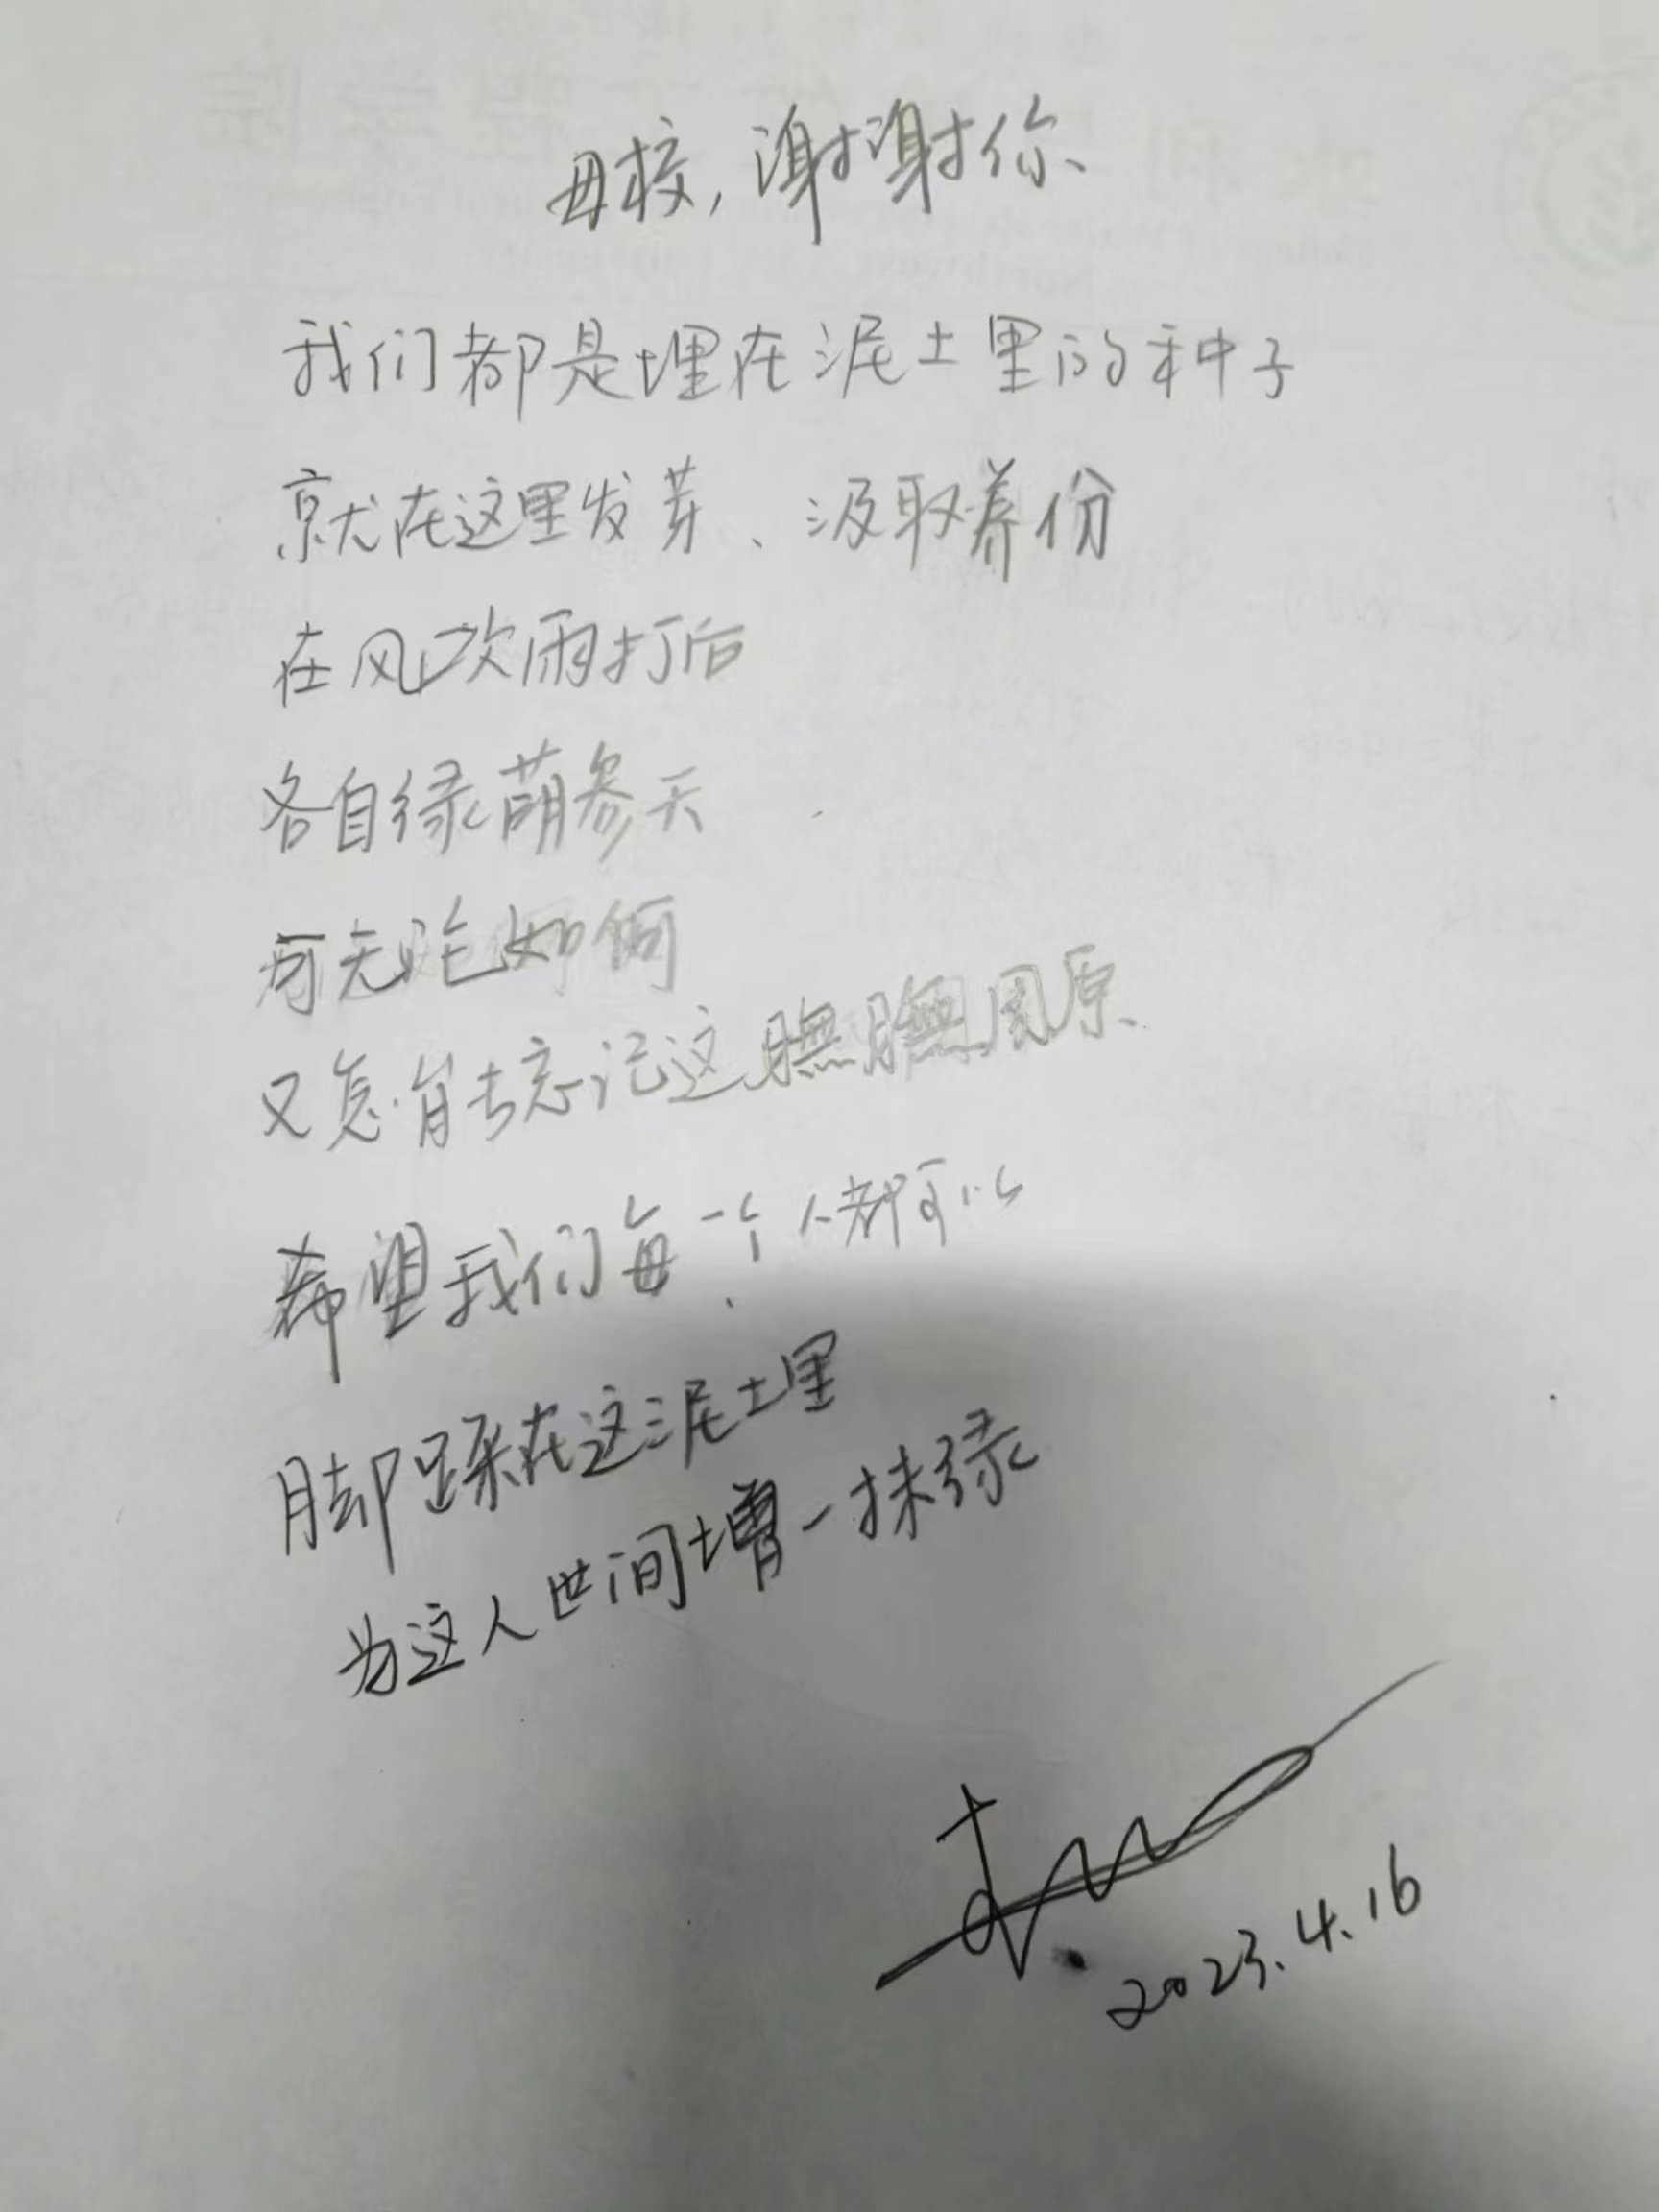 母校，谢谢你、
我们都是埋在泥土里的种子
就在这里发芽、汲取养份
在风吹雨打后
各自绿萌参天
可无论如何
又怎肯去忘记这膴膴周原、
希望我们每一个人都可以
脚踩在这泥土里
为这人世间增一抹绿
2023.4.16